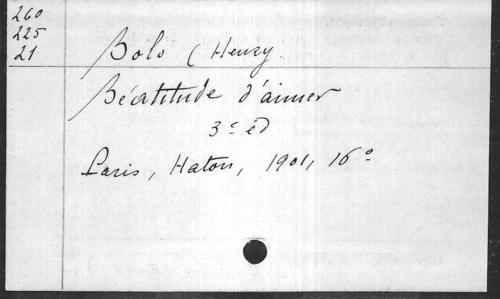 260
225
21
Bolo (Henry
Béatitude d'aimer
3e éd
Paris, Haton, 1901, 16°